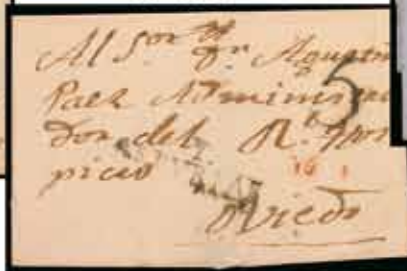 Al S.or D.n Agustin
Paez Adminis
5
dor del R.l Hos
picio
16 1
Oviedo